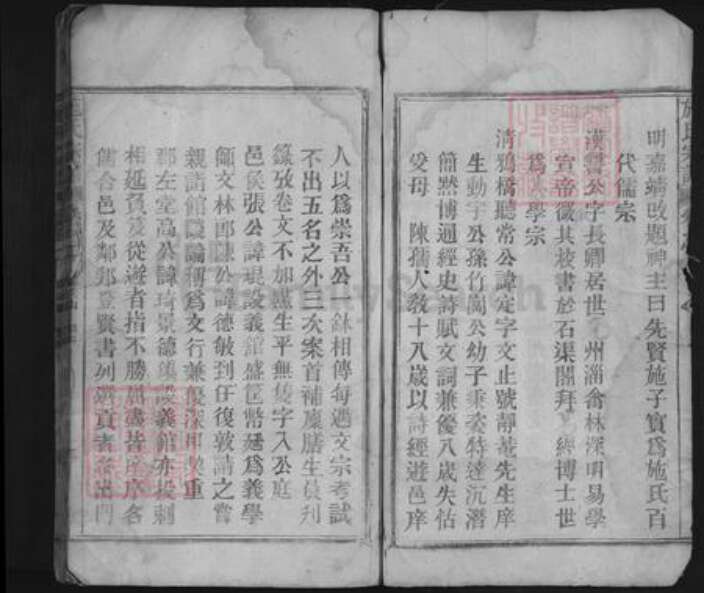 明嘉靖改題神主曰先賢施子實爲施氏百
代儒宗
漢讐公字長卿居世州淄禽林深明易學
宣帝徵其校書於石渠閣拜經博士世
爲學宗
清鴉橋聽常公諱定字文止號靜菴先生庠
生勳宇公孫竹閬公幼子秉姿特達沉潛
簡默博通經史詩賦文詞兼優八歲失怙
受母陳孺人敎十八歲以詩經遊邑庠
人以爲崇吾公一鉢相傳每遇文宗考試
不出五名之外三次案首補廩膳生員刋
簶攷卷文不加點生平無隻字入公庭
邑侯張公諱琨設義館盛筐幣延爲義學
師文林郎陳公諱德敏到任復敦請之嘗
親詣館論傳爲文行兼優深重
郡左堂高公諱琦景德設義館亦投刺
相延貧及從遊者指不勝屈盡皆庠名
儒合邑及鄰邦登賢書列選貢者出門